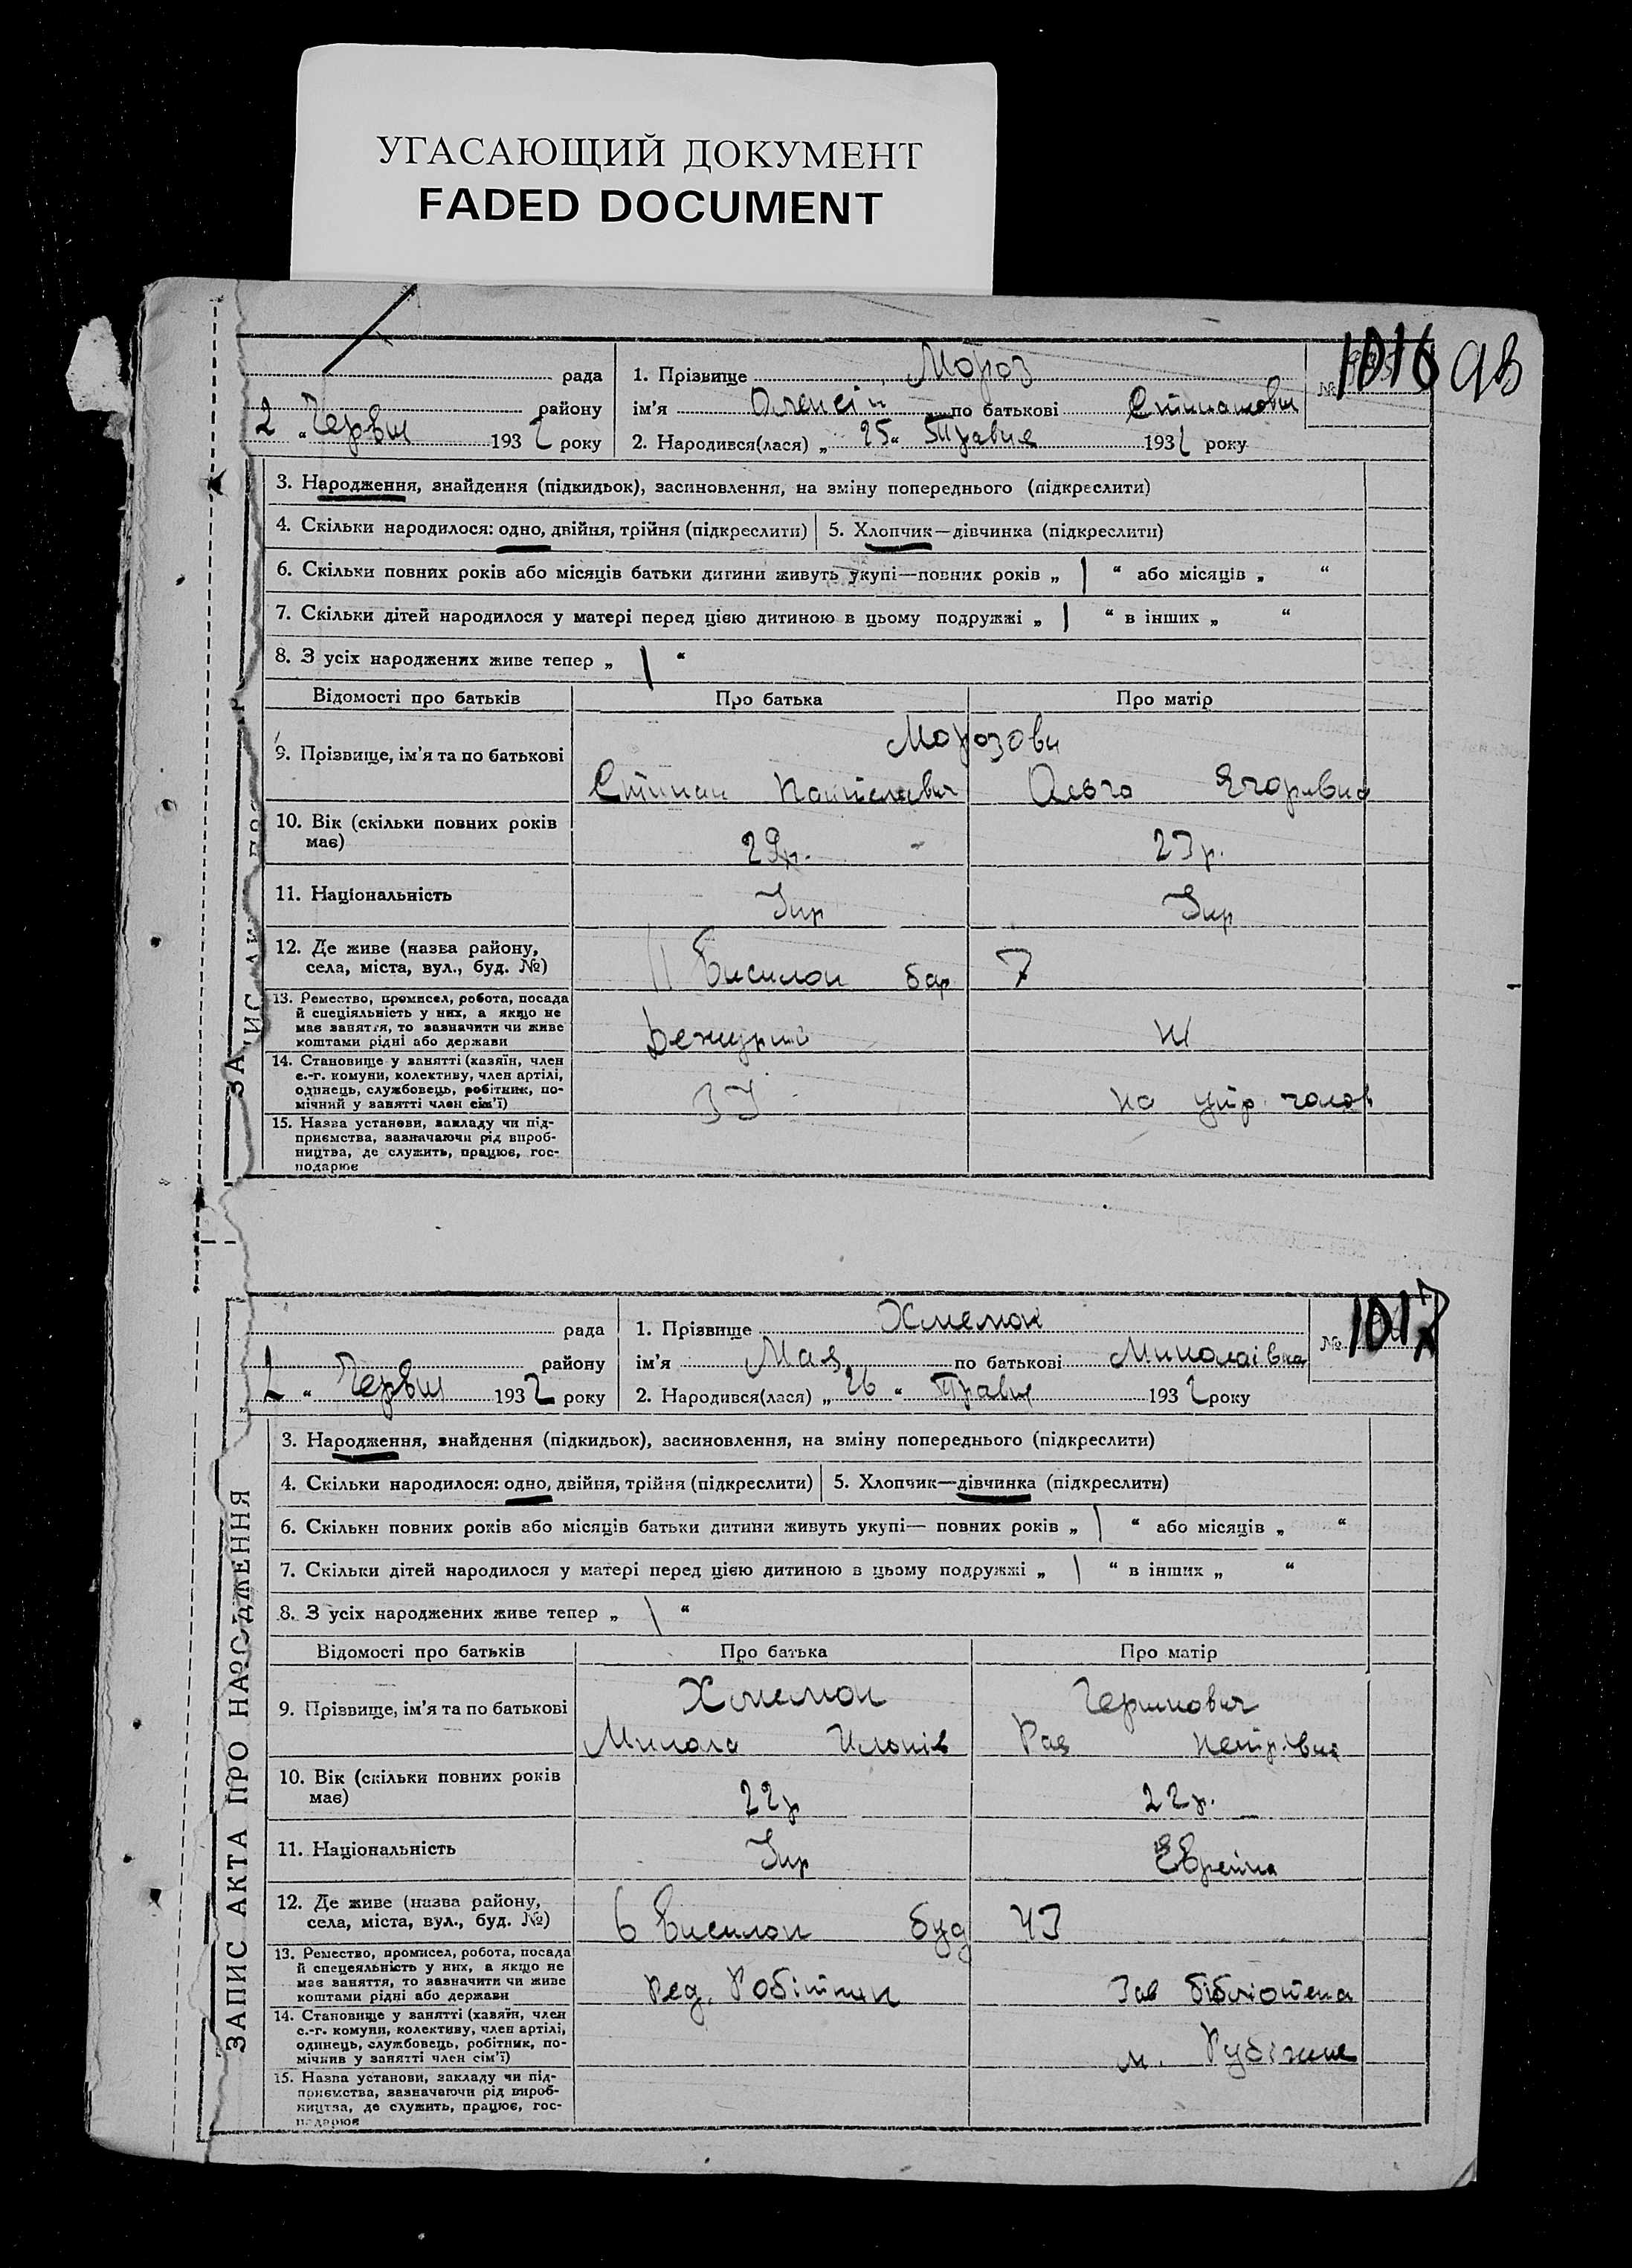 УГАСАЮЩИЙ ДОКУМЕНТ
FADED DOCUMENT
рада
1. Прізвище Мороз
№ 1016 98
району
ім'я Олексій по батькові
2 „ Червня 1932 року
2. Народився(лася) „ 25 “ Травня 1932 року
3. Народження, знайдення (підкидьок), засиновлення, на зміну попереднього (підкреслити)
4. Скільки народилося: одно, двійня, трійня (підкреслити) 5. Хлопчик—дівчинка (підкреслити)
6. Скільки повних років або місяців батьки дитини живуть укупі—повних років „ 1 “ або місяців „ “
7. Скільки дітей народилося у матері перед цією дитиною в цьому подружжі „ 1 “ в інших „ “
8. З усіх народжених живе тепер „ 1 “
Відомості про батьків Про батька Про матір
Морозови
9. Прізвище, ім'я та по батькові
Ольга Ягорівна
10. Вік (скільки повних років має)
29р. 23р.
11. Національність
Укр Укр
12. Де живе (назва району, села, міста, вул., буд. №)
11 Висилок бар 7
13. Ремество, промисел, робота, посада й спеціяльність у них, а якщо не має заняття, то зазначити чи живе коштами рідні або держави
14. Становище у занятті (хазяїн, член с.-г. комуни, колективу, член артілі, одинець, службовець, робітник, помічний у занятті член сім'ї)
на утр. чолов
15. Назва установи, закладу чи підприємства, зазначаючи рід виробництва, де служить, працює, господарює
ЗАПИС АКТА ПРО НАРОДЖЕННЯ
рада
1. Прізвище Хмельок
№ 1017
району
ім'я Мая по батькові Миколаївна
2 „ Червня 1932 року
2. Народився(лася) „ 26 “ Травня 1932 року
3. Народження, знайдення (підкидьок), засиновлення, на зміну попереднього (підкреслити)
4. Скільки народилося: одно, двійня, трійня (підкреслити) 5. Хлопчик—дівчинка (підкреслити)
6. Скільки повних років або місяців батьки дитини живуть укупі— повних років „ 1 “ або місяців „ “
7. Скільки дітей народилося у матері перед цією дитиною в цьому подружжі „ 1 “ в інших „ “
8. З усіх народжених живе тепер „ 1 “
Відомості про батьків Про батька Про матір
9. Прізвище, ім'я та по батькові
Микола Рая Петрівна
10. Вік (скільки повних років має)
22р 22р.
11. Національність
Укр Еврейка
12. Де живе (назва району, села, міста, вул., буд. №)
6 Висилок буд 43
13. Ремество, промисел, робота, посада й спецеяльність у них, а якщо не має заняття, то зазначити чи живе коштами рідні або держави
Ред. Робітник Зав бібліотека
14. Становище у занятті (хазяїн, член с.-г. комуни, колективу, член артілі, одинець, службовець, робітник, помічник у занятті член сім'ї)
м. Рубіжне
15. Назва установи, закладу чи підприємства, зазначаючи рід виробництва, де служить, працює, господарює